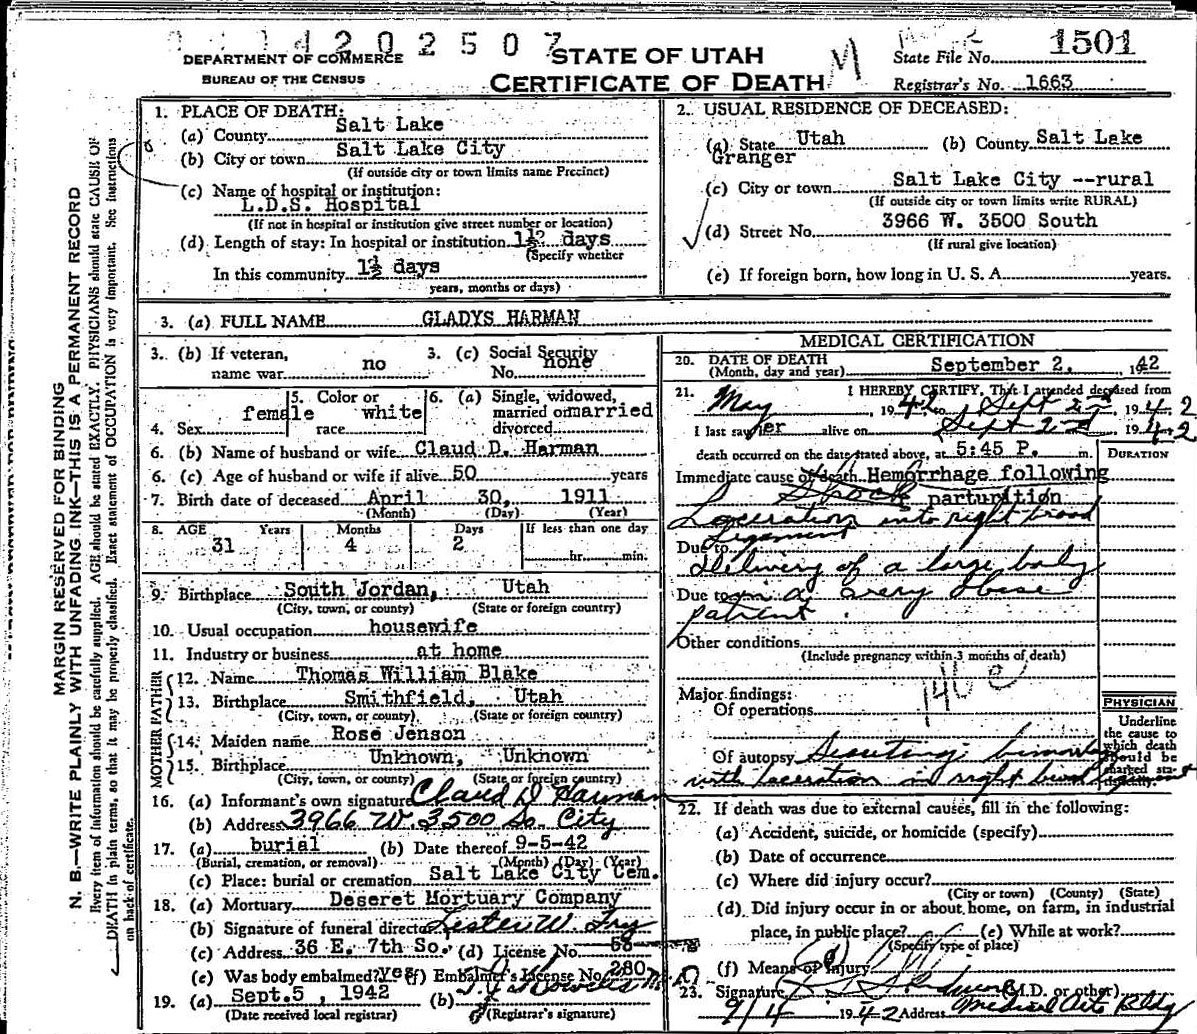 4 2 0 2 5 0 7
DEPARTMENT OF COMMERCE
BUREAU OF THE CENSUS
STATE OF UTAH
CERTIFICATE OF DEATH
M
State File No. 1501
Registrar's No. 1663
MARGIN RESERVED FOR BINDING
N. B.—WRITE PLAINLY WITH UNFADING INK—THIS IS A PERMANENT RECORD
Every item of information should be carefully supplied. AGE should be stated EXACTLY. PHYSICIANS should state CAUSE OF
DEATH in plain terms, so that it may be properly classified. Exact statement of OCCUPATION is very important. See instructions
on back of certificate.
1. PLACE OF DEATH:
(a) County Salt Lake
(b) City or town Salt Lake City
(If outside city or town limits name Precinct)
(c) Name of hospital or institution:
L.D.S. Hospital
(If not in hospital or institution give street number or location)
(d) Length of stay: In hospital or institution 1½ days
(Specify whether
In this community 1½ days
years, months or days)
2. USUAL RESIDENCE OF DECEASED:
(a) State Utah (b) County Salt Lake
Granger
(c) City or town Salt Lake City --rural
(If outside city or town limits write RURAL)
(d) Street No. 3966 W. 3500 South
(If rural give location)
(e) If foreign born, how long in U. S. A. years.
3. (a) FULL NAME GLADYS HARMAN
3. (b) If veteran, name war no
3. (c) Social Security No. none
4. Sex female
5. Color or race white
6. (a) Single, widowed, married or divorced married
6. (b) Name of husband or wife Claud D. Harman
6. (c) Age of husband or wife if alive 50 years
7. Birth date of deceased April 30, 1911
(Month) (Day) (Year)
8. AGE Years Months Days If less than one day
31 4 2 hr. min.
9. Birthplace South Jordan, Utah
(City, town, or county) (State or foreign country)
10. Usual occupation housewife
11. Industry or business at home
FATHER
12. Name Thomas William Blake
13. Birthplace Smithfield, Utah
(City, town, or county) (State or foreign country)
MOTHER
14. Maiden name Rose Jenson
15. Birthplace Unknown, Unknown
(City, town, or county) (State or foreign country)
16. (a) Informant's own signature Claud D Harman
(b) Address 3966 W. 3500 So. City
17. (a) burial (b) Date thereof 9-5-42
(Burial, cremation, or removal) (Month) (Day) (Year)
(c) Place: burial or cremation Salt Lake City Cem.
18. (a) Mortuary Deseret Mortuary Company
(b) Signature of funeral director Lester W. Fry
(c) Address 36 E. 7th So. (d) License No. 58
(e) Was body embalmed? yes (f) Embalmer's License No. 280
19. (a) Sept.5 , 1942 (b) M. D
(Date received local registrar) (Registrar's signature)
MEDICAL CERTIFICATION
20. DATE OF DEATH
(Month, day and year) September 2, 1942
21. I HEREBY CERTIFY, That I attended deceased from
May, 1942 to Sept 2nd 1942
I last saw her alive on Sept 2nd 1942
death occurred on the date stated above, at 5:45 P. m.
DURATION
Immediate cause of death Hemorrhage following
Shock parturition
Laceration into right broad
Ligament
Due to
Delivery of a large baby
Due to in a very obese
patient.
Other conditions
(Include pregnancy within 3 months of death)
Major findings:
Of operations
Of autopsy
with laceration in right broad ligament
PHYSICIAN
Underline
the cause to
which death
should be
22. If death was due to external causes, fill in the following:
(a) Accident, suicide, or homicide (specify)
(b) Date of occurrence
(c) Where did injury occur?
(City or town) (County) (State)
(d) Did injury occur in or about home, on farm, in industrial
place, in public place? (e) While at work?
(Specify type of place)
(f) Means of injury
23. Signature (M.D. or other)
9/4 1942 Address Medical Arts Bldg